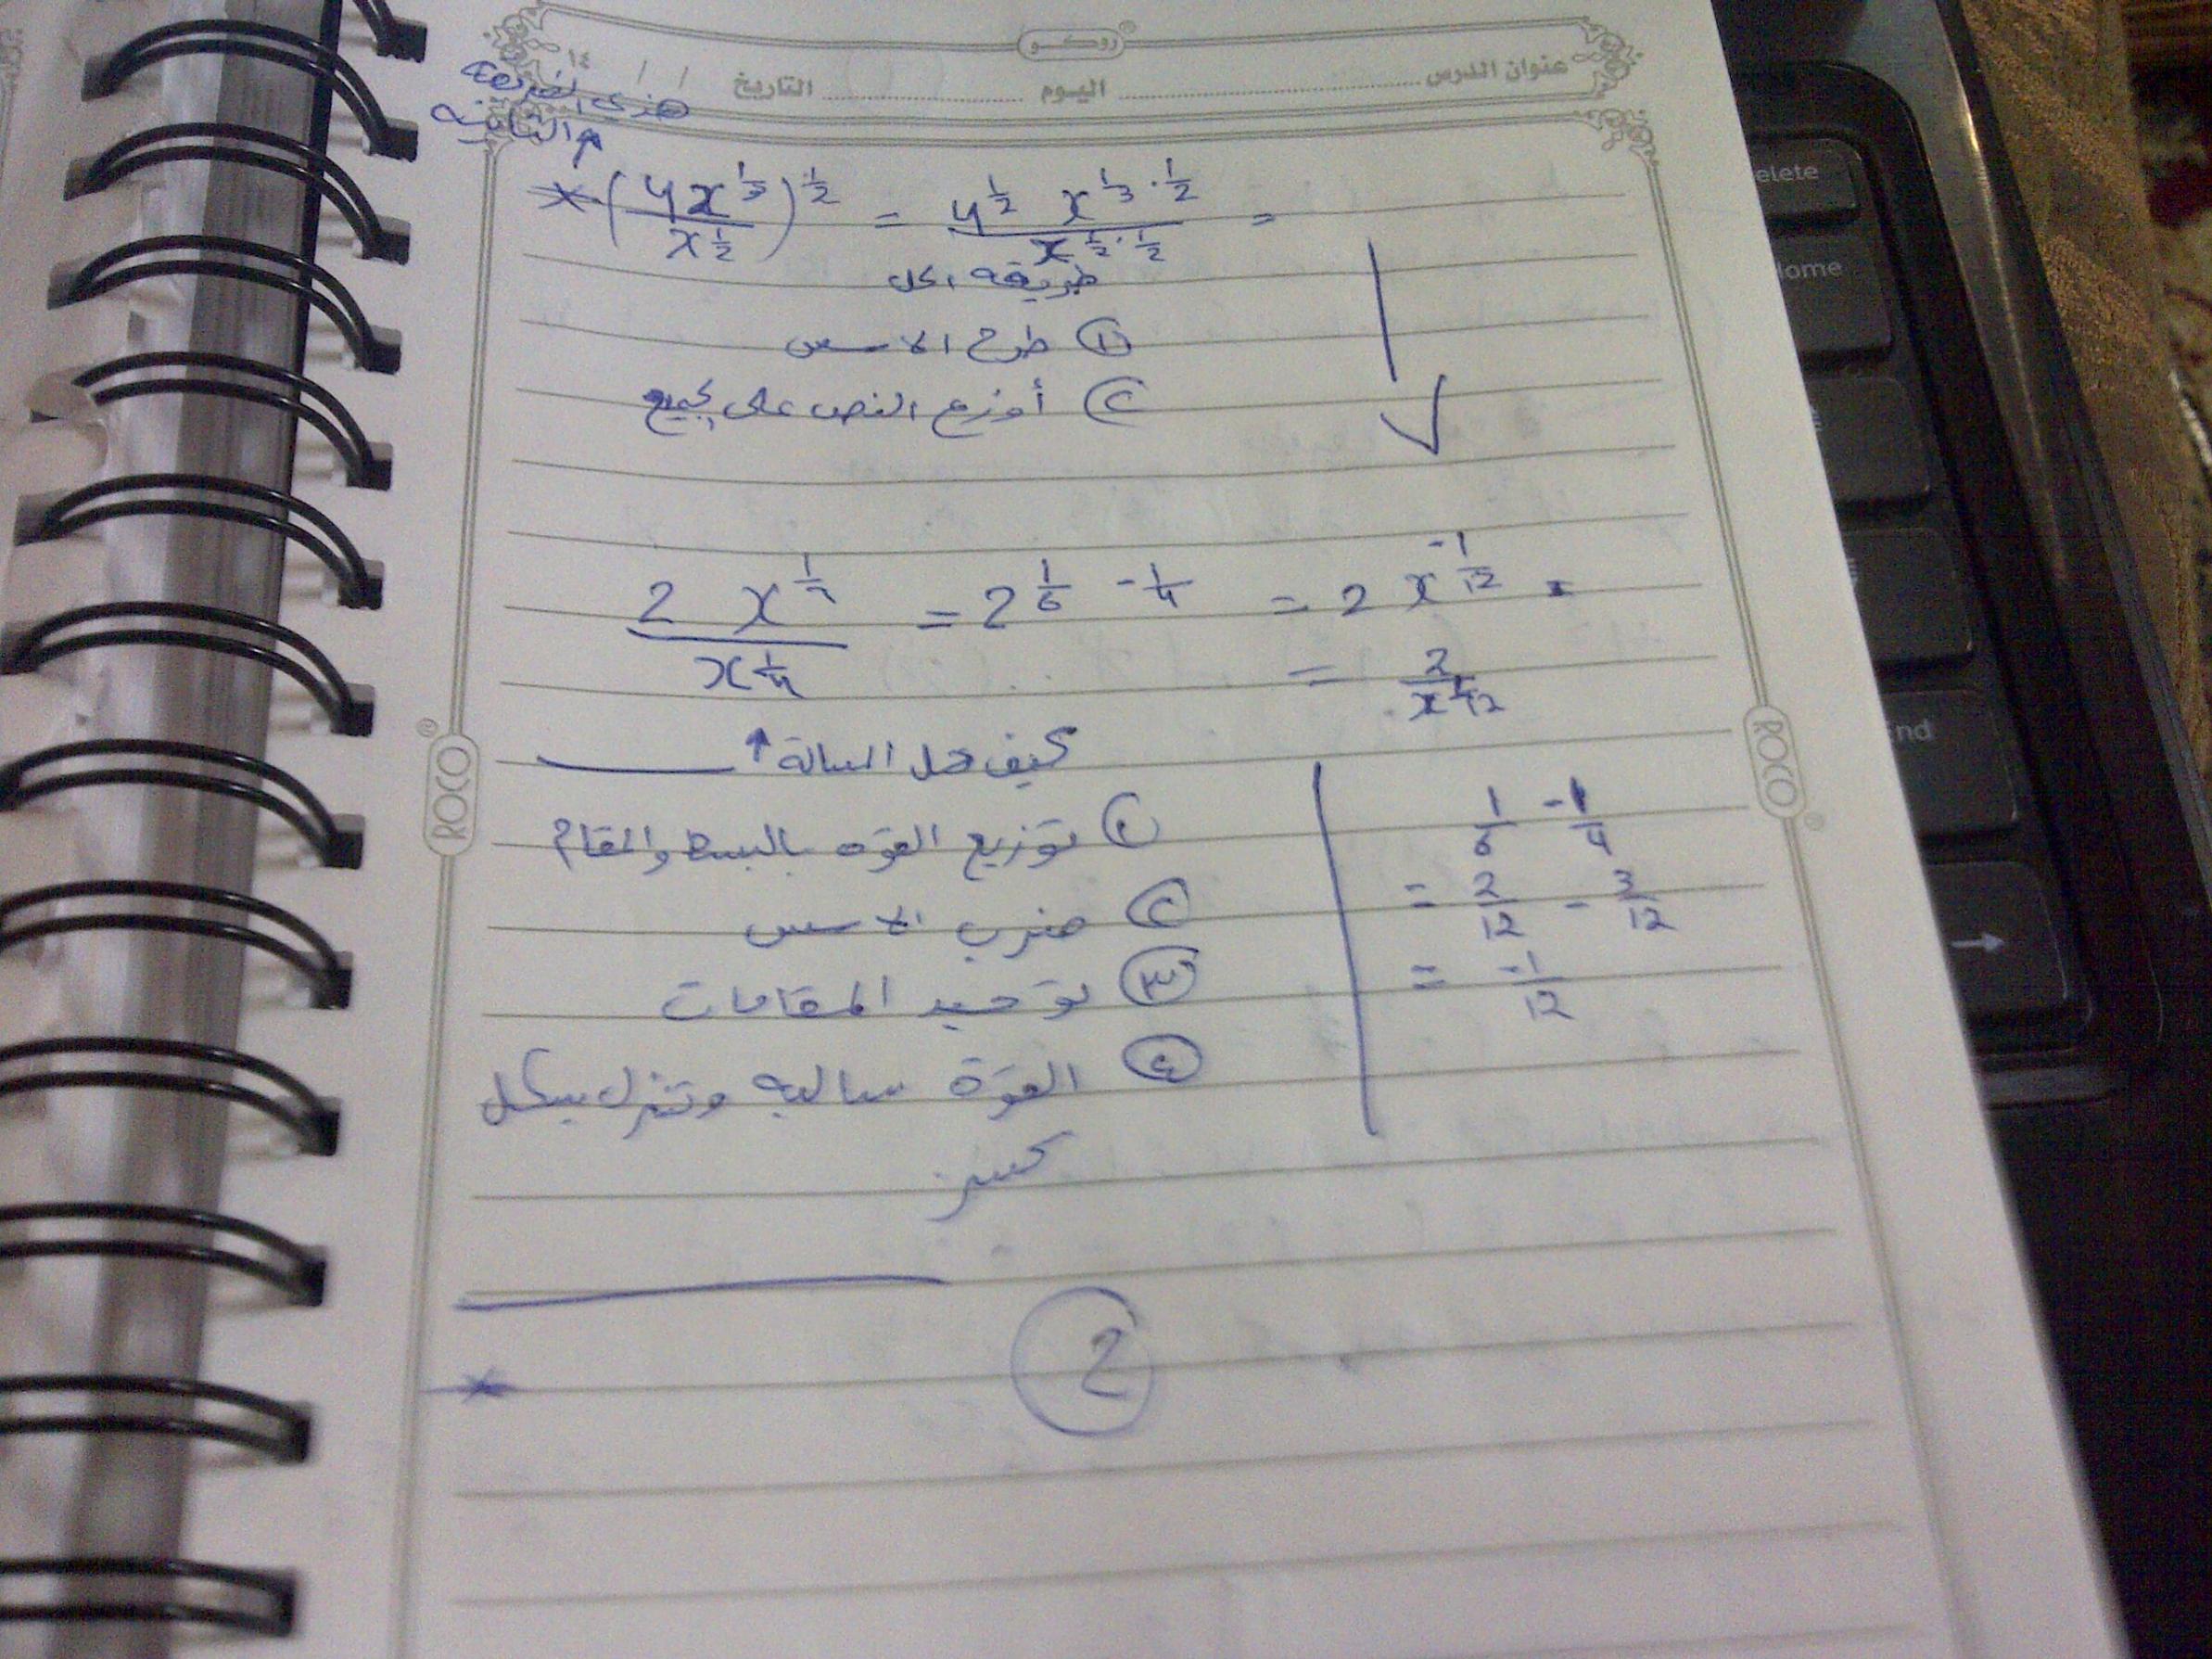 روكو
عنوان الدرس اليوم التاريخ / / ١٤
هذي الطريقة
الثانية
* (4x^{1/3} / x^{1/2})^{1/2} = 4^{1/2} x^{1/3 · 1/2} / x^{1/2 · 1/2} =
طريقه الحل
① طرح الاسس
② أوزع النص على الجميع
2 x^{1/} / x^{1/4} = 2^{1/6 - 1/4} = 2 x^{-1/12} =
= 2 / x^{1/12}
كيف حل المسالة
① توزيع القوه بالبسط والمقام
② ضرب الاسس
③ توحيد المقامات
④ القوة سالبه وتنزل بشكل
كسر
1/6 - 1/4
= 2/12 - 3/12
= -1/12
ROCO
ROCO
* 2
delete
Home
End
→